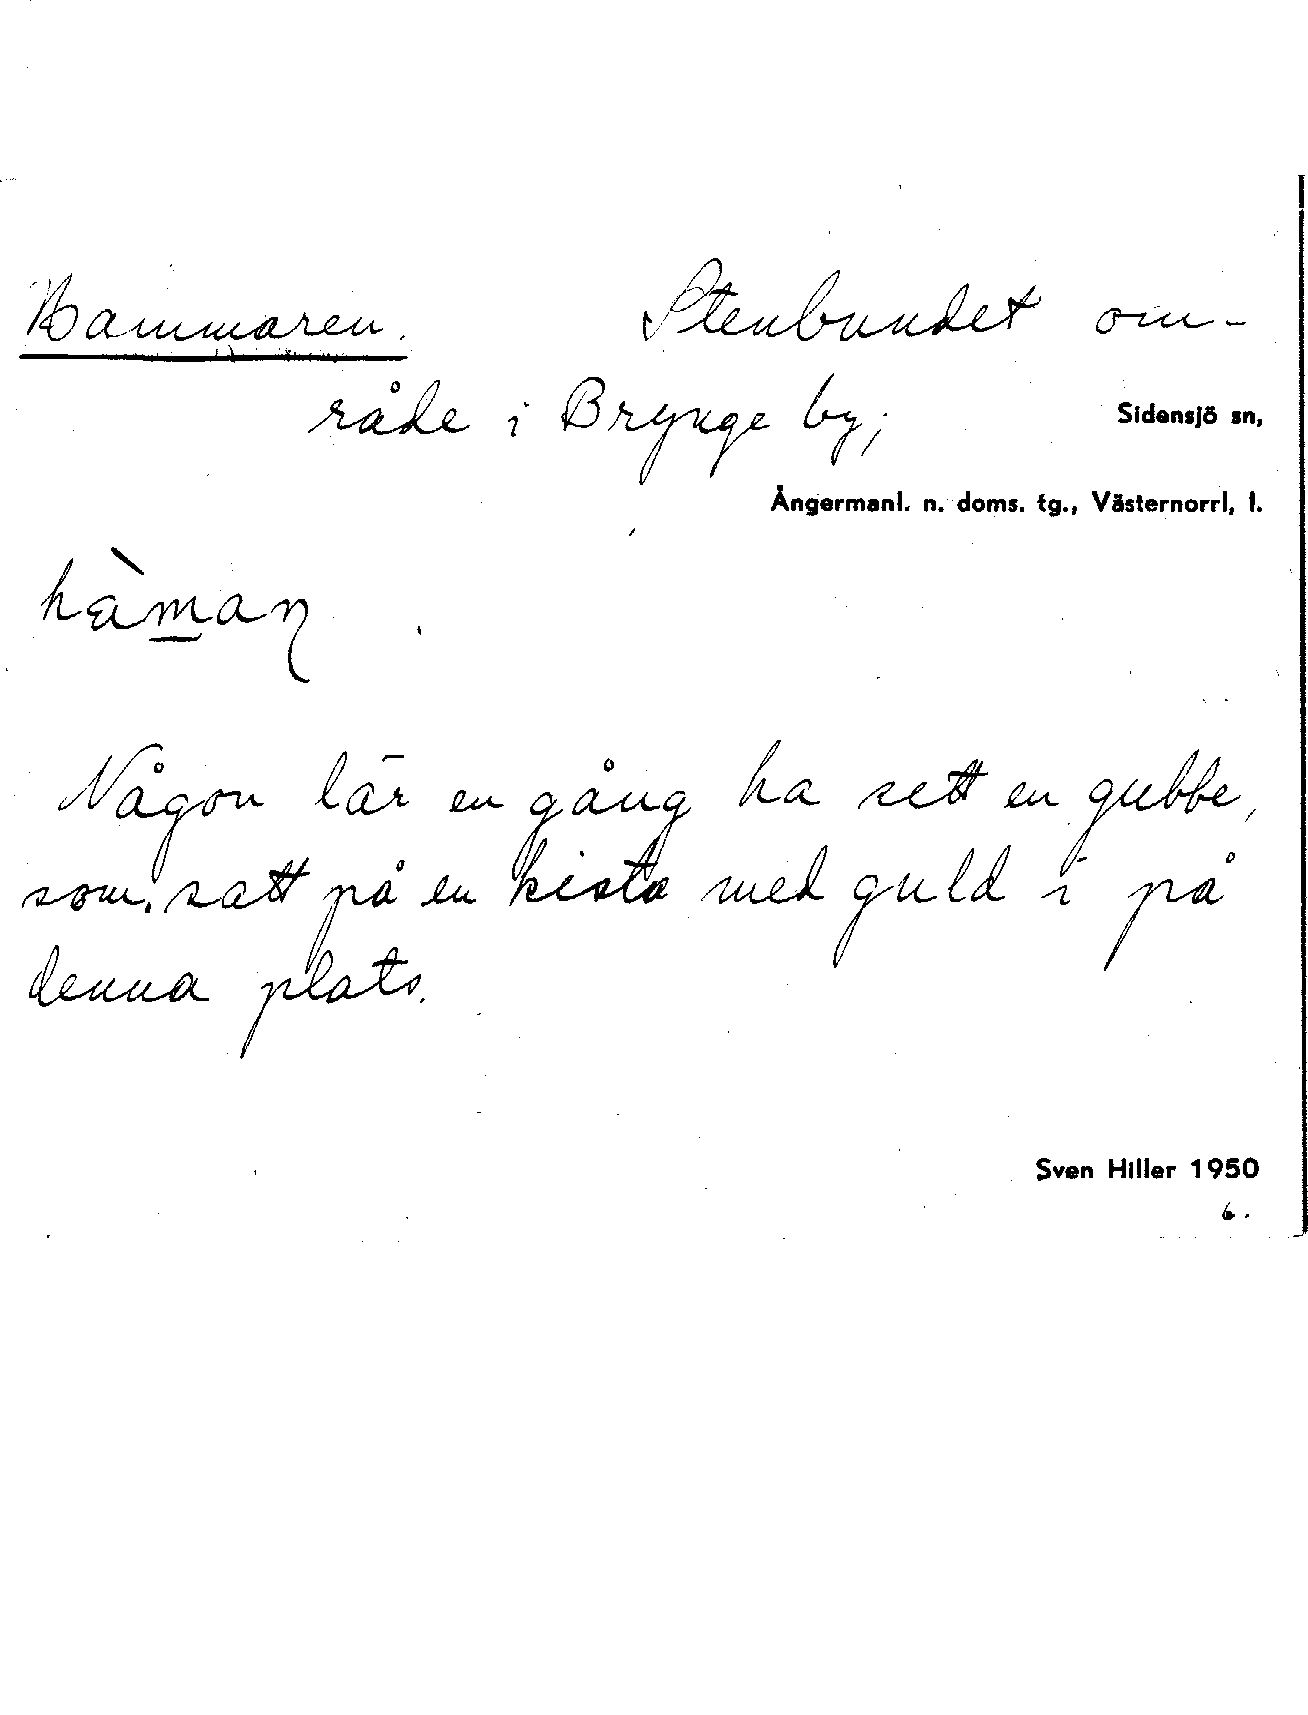 Hammaren. Stenbundet om-
råde i Brynge by;
Sidensjö sn,
Ångermanl. n. doms. tg., Västernorrl. l.
hàman
Någon lär en gång ha sett en gubbe,
som satt på en kista med guld i på
denna plats.
Sven Hiller 1950
6.